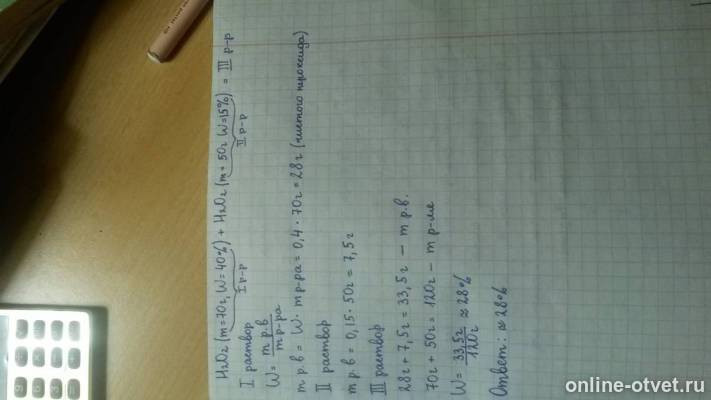 H₂O₂ (m=70г, W=40%) + H₂O₂ (m=50г W=15%) = III р-р
I р-р
II р-р
I раствор
W = m р.в / m р-ра
m р.в = W · m р-ра = 0,4 · 70г = 28г (чистого пироксида)
II раствор
m р.в = 0,15 · 50г = 7,5г
III раствор
28г + 7,5г = 33,5г — m р.в.
70г + 50г = 120г — m р-ля
W = 33,5г / 120г ≈ 28%
Ответ: ≈ 28%
online-otvet.ru